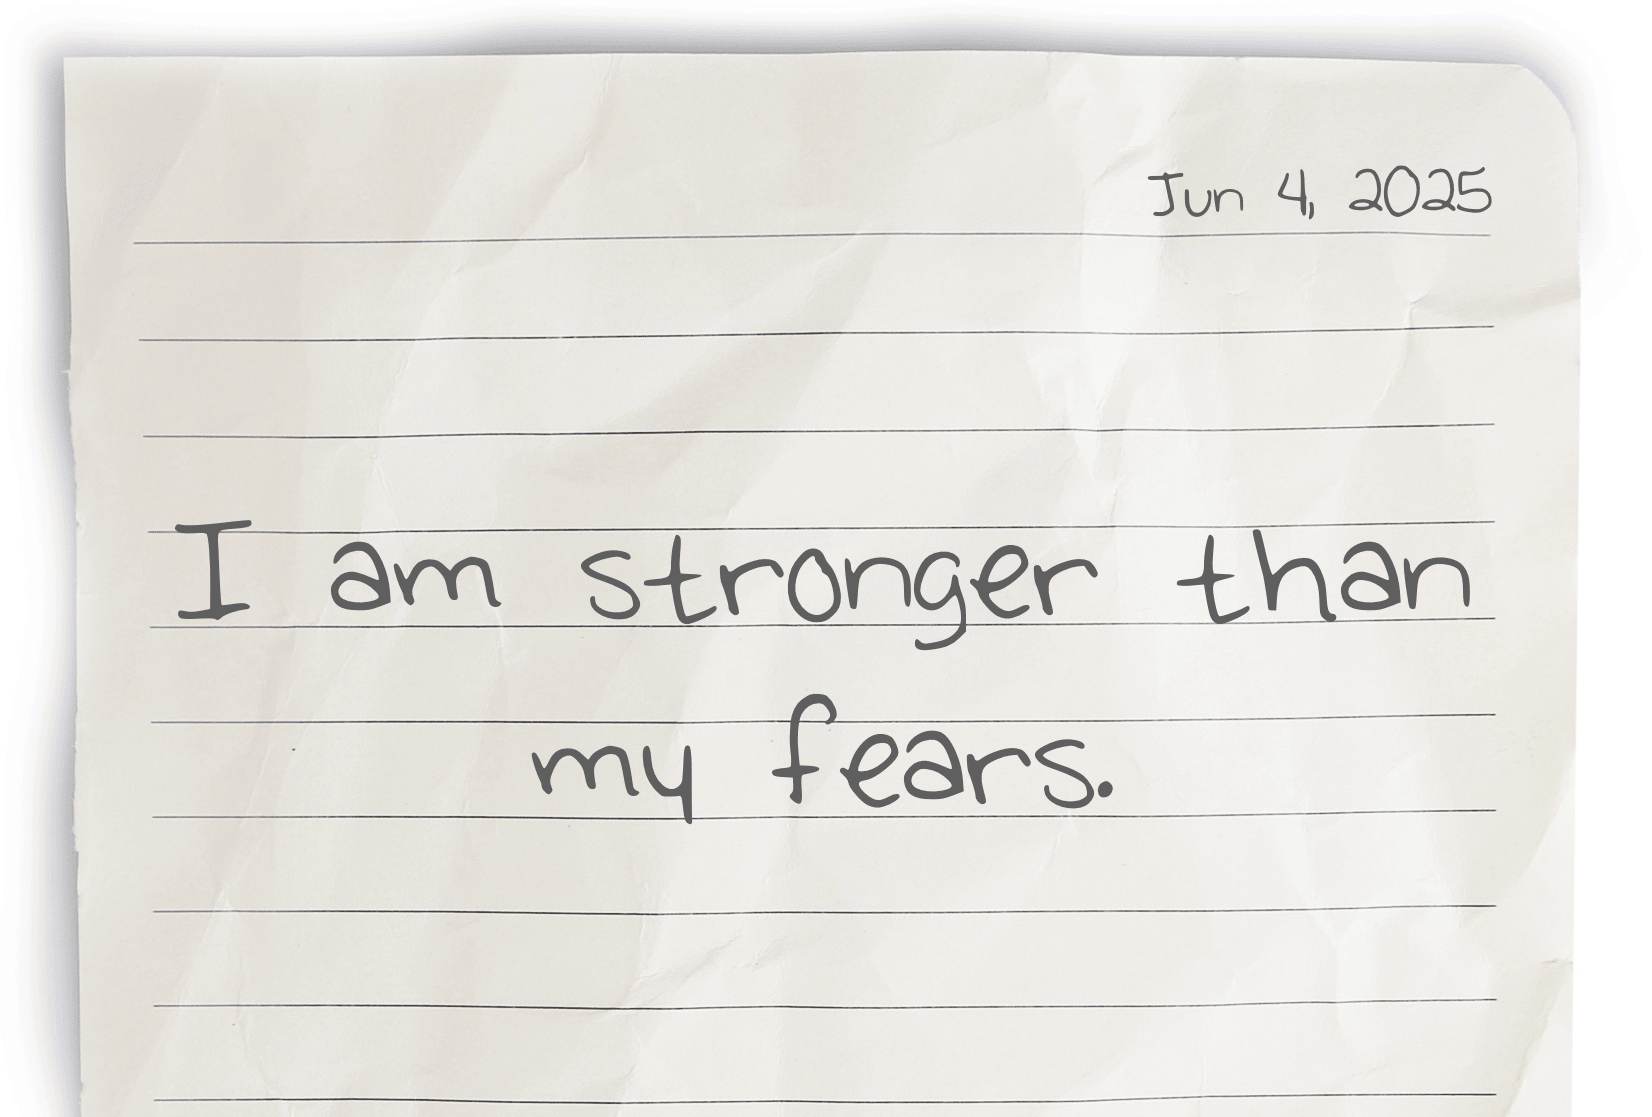 Jun 4, 2025
I am stronger than
my fears.